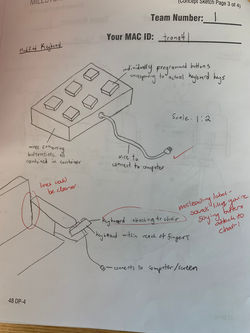 (Concept Sketch Page 3 of 4)
Team Number: 1
Your MAC ID:
Modified Keyboard
individually programmed buttons
corresponding to actual keyboard keys
Scale: 1:2
wires connecting
contained in container
wire to
connect to computer
lines could
be cleaner
keyboard attaching to chair
keyboard within reach of fingers
misleading label-
sounds like you're
saying buttons
attach to
chair!
connects to computer/screen
48 DP-4